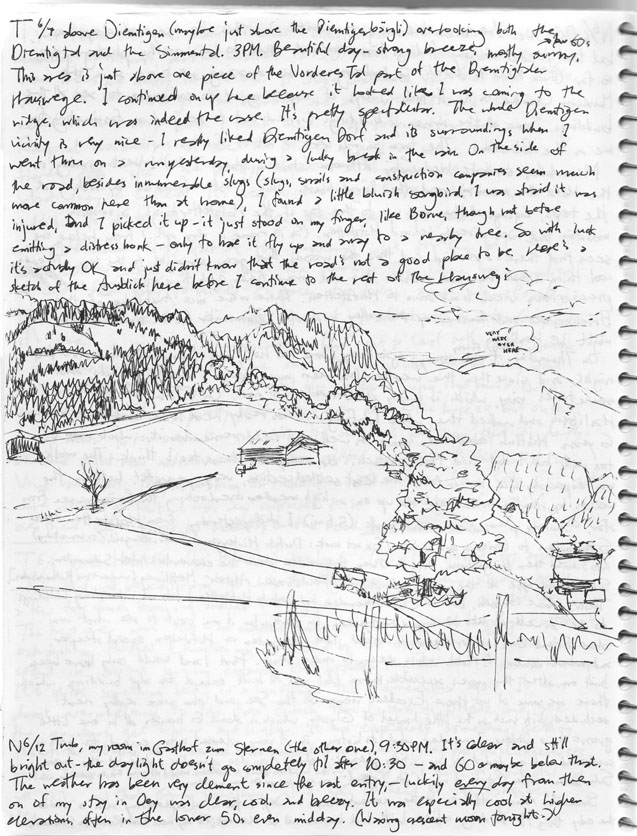 T 6/7 above Diemtigen (maybe just above the Diemtigerbärgli) overlooking both the
Diemtigtal and the Simmental. 3PM. Beautiful day - strong breeze, mostly sunny, low 60s
This area is just above one piece of the Vorderes Tal part of the Diemtigtaler
Hauswege. I continued on up here because it looked like I was coming to the
ridge, which was indeed the case. It's pretty spectacular. The whole Diemtigen
vicinity is very nice - I really liked Diemtigen Dorf and its surroundings when I
went thru on a run yesterday during a lucky break in the rain. On the side of
the road, besides innumerable slugs (slugs, snails and construction companies seem much
more common here than at home), I found a little bluish songbird. I was afraid it was
injured, and I picked it up - it just stood on my finger, like Borne, though not before
emitting a distress honk - only to have it fly up and away to a nearby tree. So with luck
it's actually OK and just didn't know that the road's not a good place to be. Here's a
sketch of the Ausblick here before I continue to the rest of the Hausweg:
VERY
NICE
OVER
HERE
N 6/12 Trub, my room im Gasthof zum Sternen (the other one), 9:30PM. It's clear and still
bright out - the daylight doesn't go completely til after 10:30 - and 60 or maybe below that.
The weather has been very clement since the last entry, - luckily every day from then
on of my stay in Oey was clear, cool and breezy. It was especially cool at higher
elevations, often in the lower 50s even midday. (Waxing crescent moon tonight.)